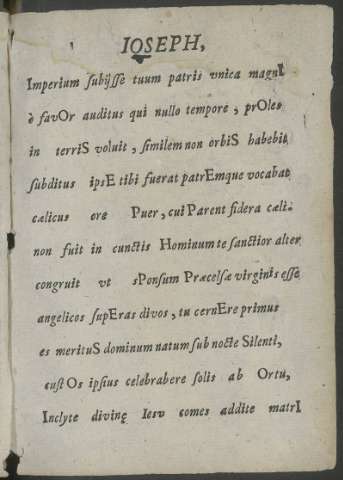 IOSEPH,
Imperium subijsse tuum patris vnica magnI
è favOr auditus qui nullo tempore, prOles
in terriS voluit, similem non orbiS habebit
subditus ipsE tibi fuerat patrEmque vocabat
cælicus ore Puer, cui Parent sidera cæli.
non fuit in cunctis Hominum te sanctior alter
congruit vt sPonsum Præcelsæ virginis esse
angelicos supEras divos, tu cernEre primus
es merituS dominum natum sub nocte Silenti,
custOs ipsius celebrabere solis ab Ortu,
Inclyte divinę Iesv comes addite matrI